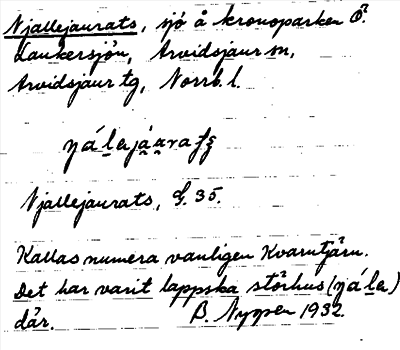 Njallejaurats, sjö å kronoparken Ö.
Laukersjön, Arvidsjaur sn,
Arvidsjaur tg, Norrb. l.
Njallejaurats, G. 35.
Kallas numera vanligen Kvarntjärn.
Det har varit lappska störhus (ŋá́la)
där. B. Nyppen 1932.